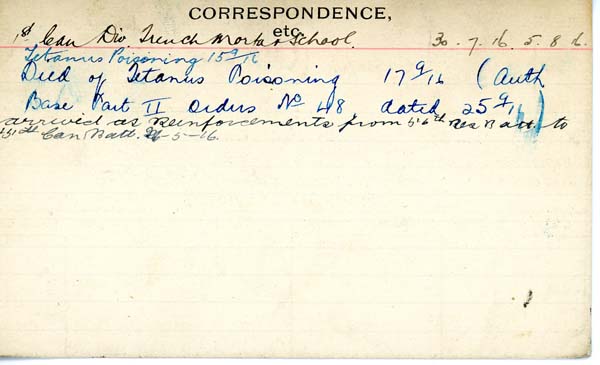 CORRESPONDENCE,
etc.
1st Can Div. Trench Mortar School. 30.7.16. 5.8.16.
Tetanus Poisoning 15 9/16
Died of Tetanus Poisoning 17 9/16 (Auth
Base Part II Orders No 48 dated 25 9/16)
arrived as Reinforcements from 56th Res Batt. to
Can Batt. -5-16.